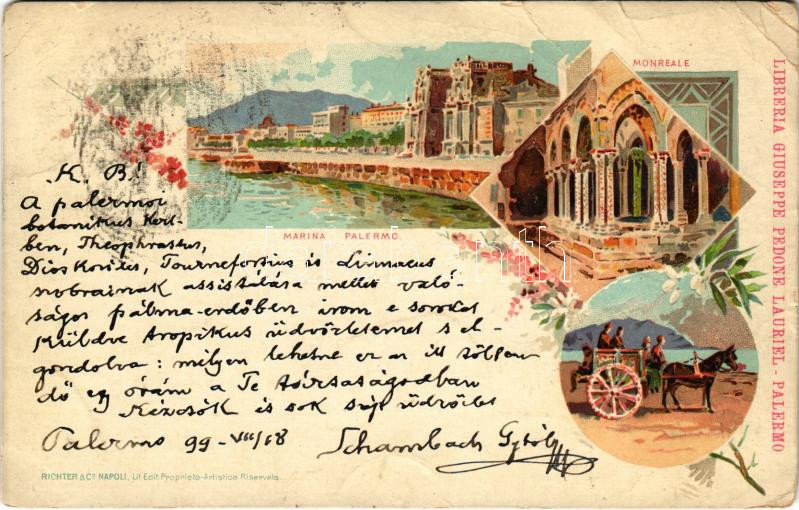 MONREALE
MARINA PALERMO
LIBRERIA GIUSEPPE PEDONE LAURIEL - PALERMO
K. B!
A palermoi
botanikus kert-
ben, Theophrastus,
Tournefortius és Linnaeus
szobrainak assistálása mellett való-
ságos pálma-erdőben irom e sorokat
küldve tropikus üdvözletemet s el-
gondolva: milyen lehetne ez az itt tölten-
dő egy órám a Te társaságodban
Kézcsók és sok szép üdvözlet
Palermo 99-VII/18 Schambach
RICHTER & Co NAPOLI, Lit Edit Proprietà-Artistica Riservata.